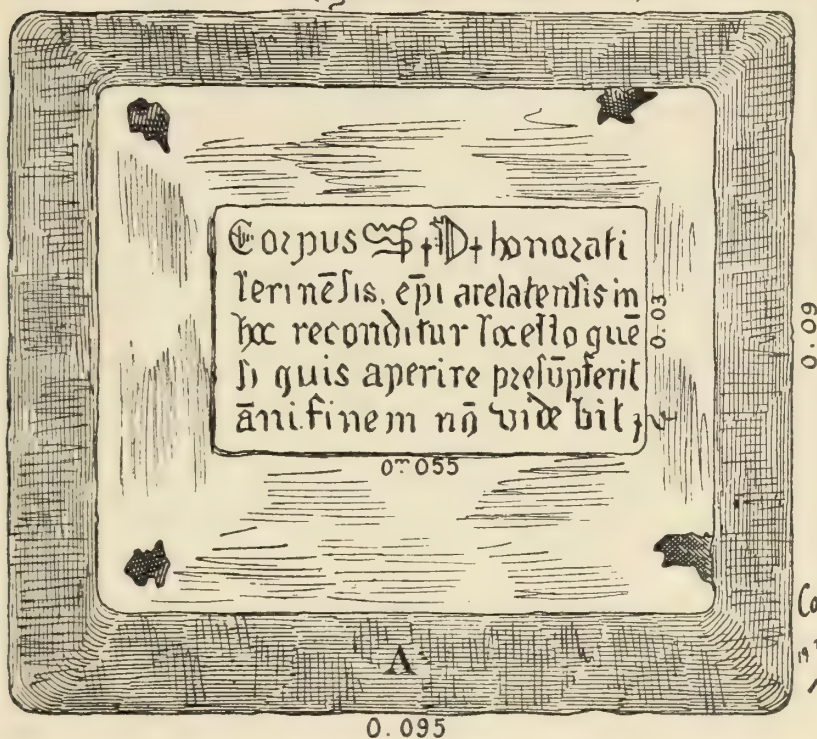 Corpus + D + honorati
lerinēsis. ep̄i arelatensis in
hoc reconditur locello quē
si quis aperire presūpserit
āni. finem nō videbit
0.03
0.09
0ᵐ055
A
0.095